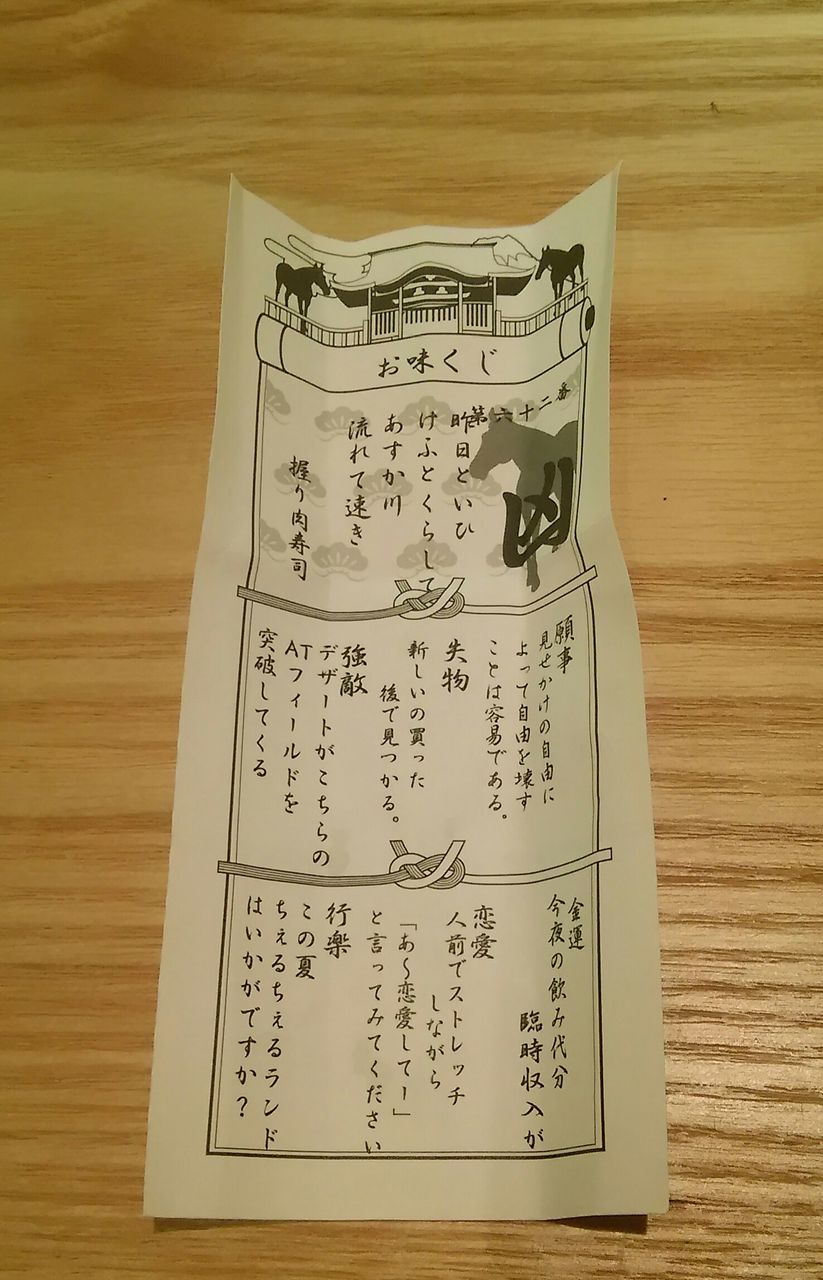 お味くじ
第六十二番
凶
昨日といひ
けふとくらして
あすか川
流れて速き
握り肉寿司
願事
見せかけの自由に
よって自由を壊す
ことは容易である。
失物
新しいの買った
後で見つかる。
強敵
デザートがこちらの
ATフィールドを
突破してくる
金運
今夜の飲み代分
臨時収入が
恋愛
人前でストレッチ
しながら
「あ〜恋愛してー」
と言ってみてください
行楽
この夏
ちぇるちぇるランド
はいかがですか？